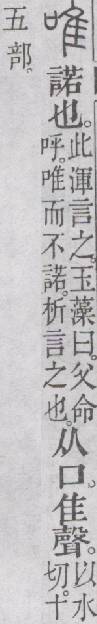 唯諾也。此渾言之。玉藻曰。父命呼。唯而不諾。析言之也。从口。隹聲。以水切。十
五部。